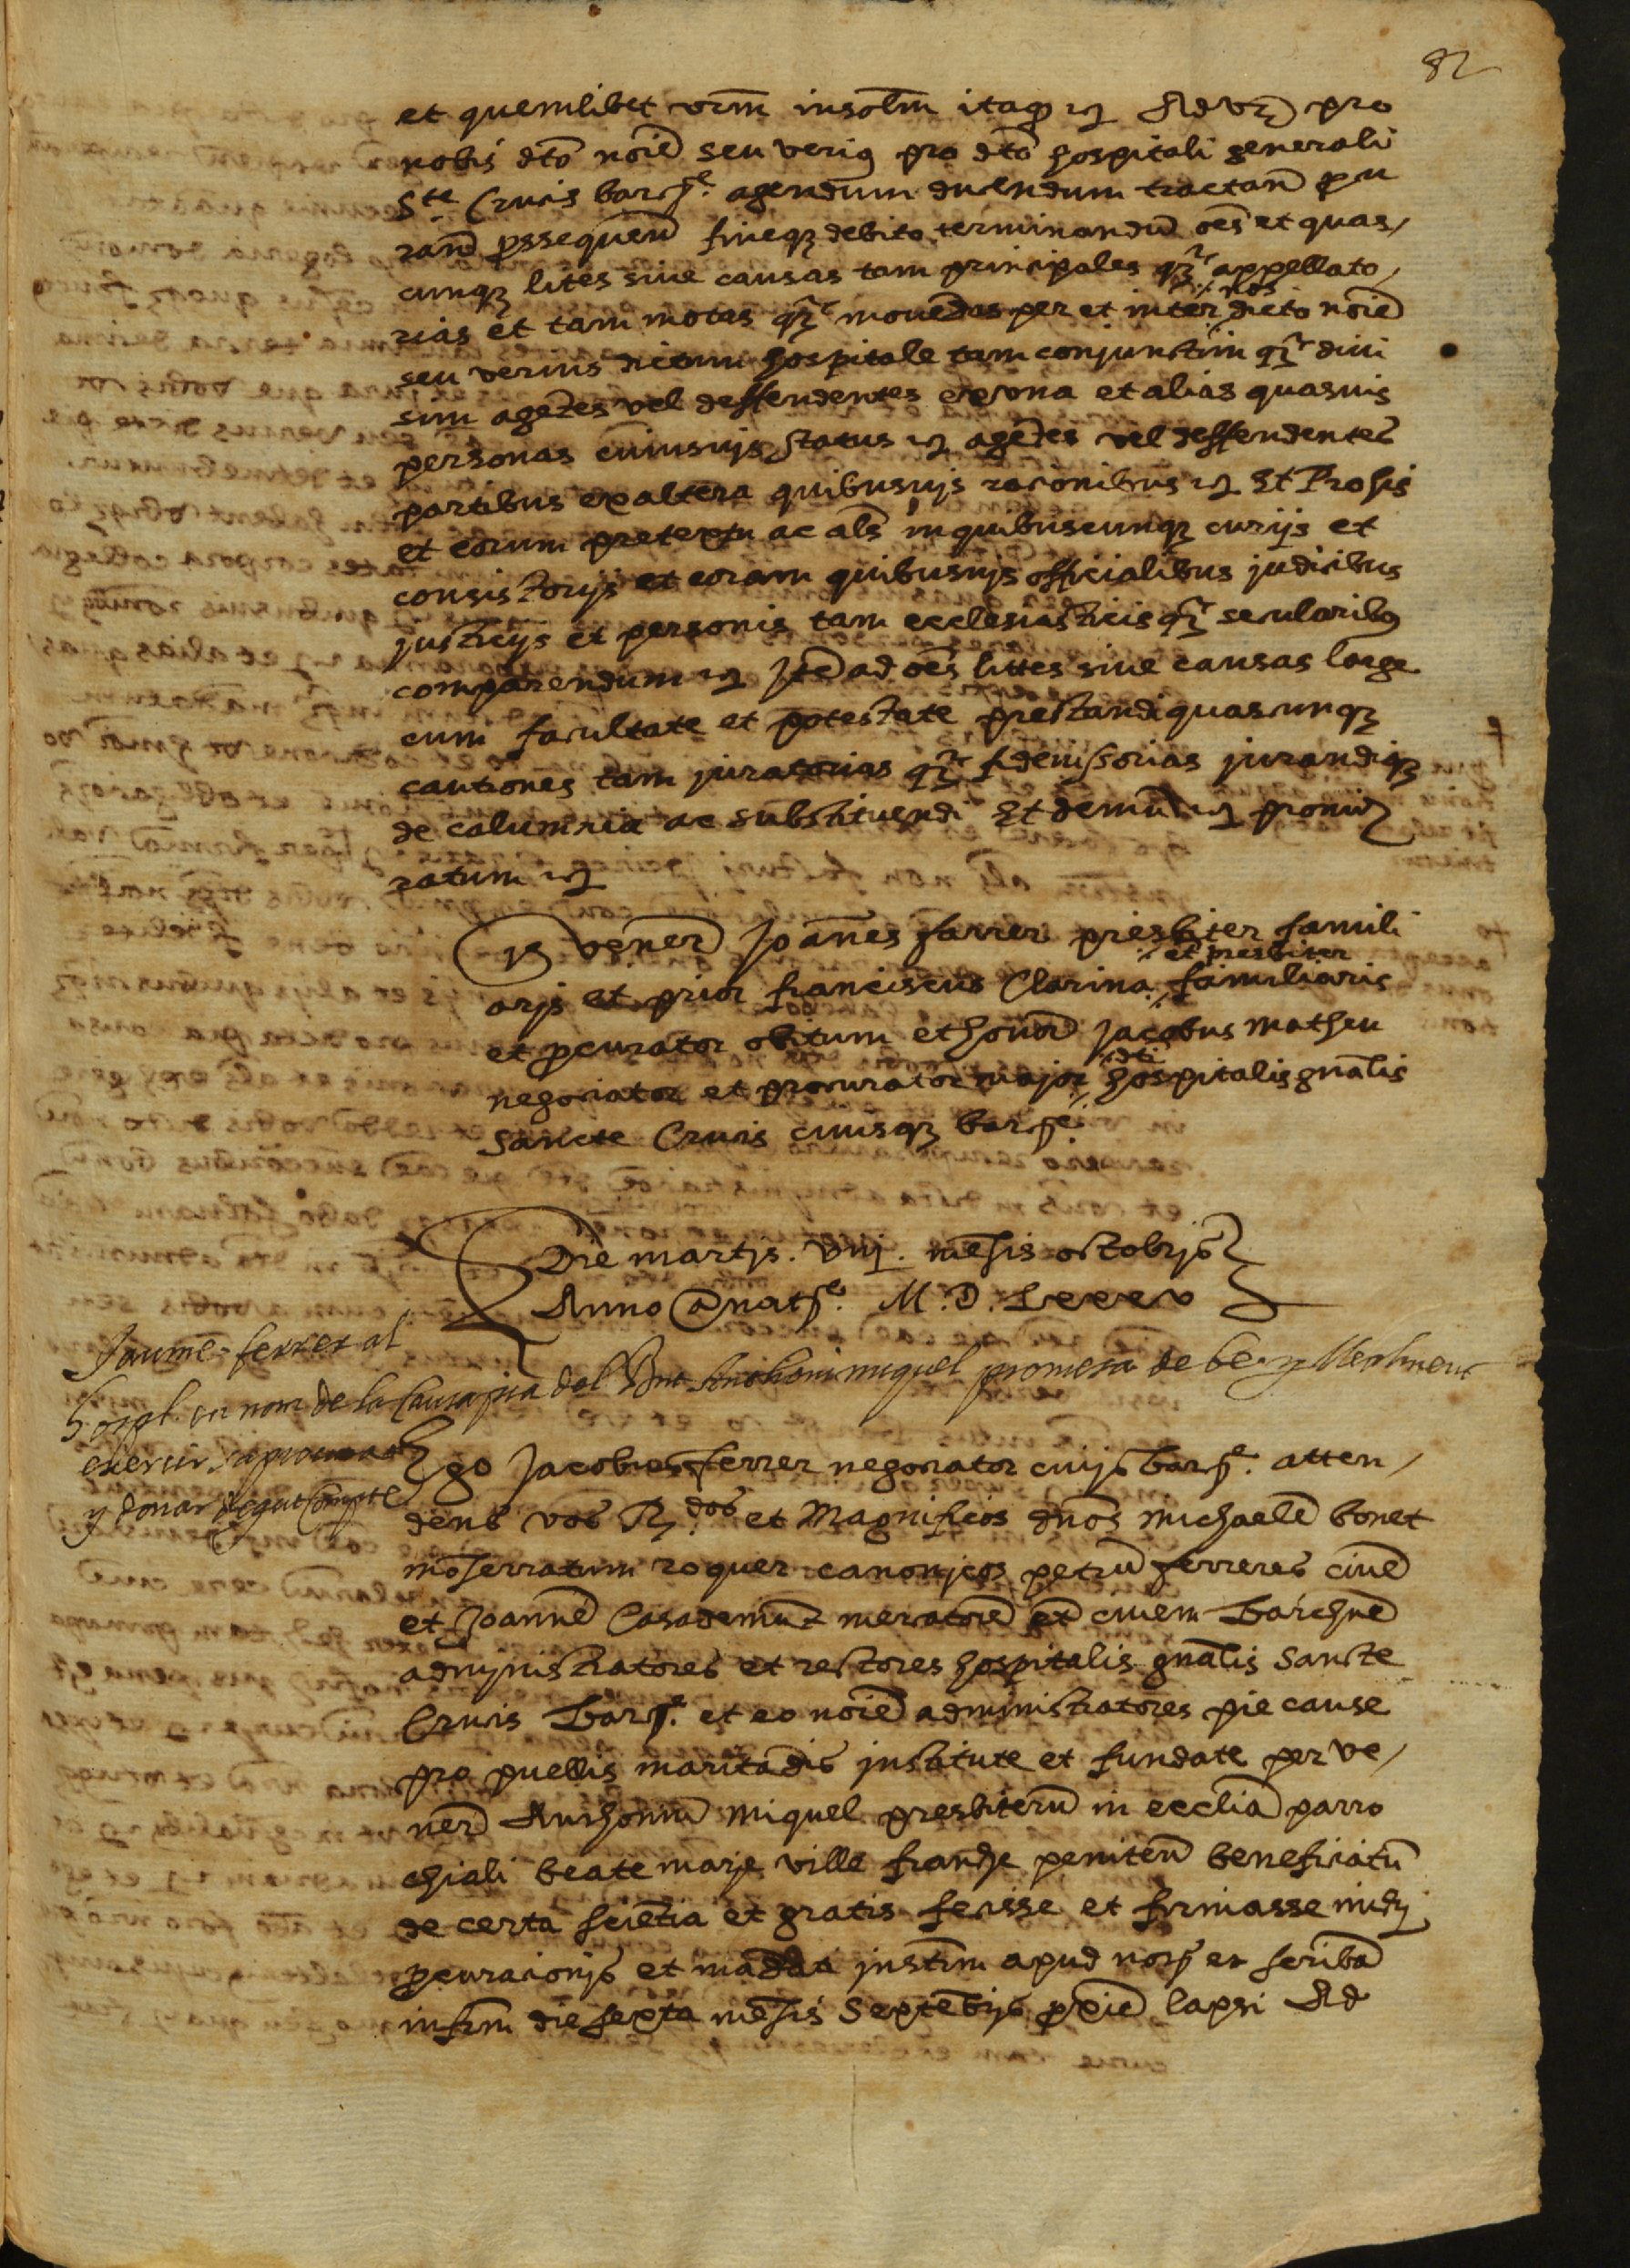 82
et quemlibet vrm̄ insolm̄ itaqꝫ etc̄ Ad vrā pro
nobis dto noīe seu verius pro dto hospitali generali
Sᵗᵉ Crucis barᵉ. agendum ducendum tractand̄ pcu
rand̄ pssequend̄ fineqꝫ debito terminandū oēs et quas,
cunqꝫ lites sive causas tam principales qꝫ appellato,
rias et tam motas qꝫ movedas per et inter nos dicto noīe
seu verius dictum hospitale tam conjunctim qꝫ divi
sim agētes vel deffendentes ex vna et alias quasuis
personas cuiusuis status etc̄ agētes vel deffendentes
partibus ex altera quibusuis racōnibus etc̄ Et Prohis
et eorum pretextu ac als̄ in quibuscunqꝫ curijs et
consistorijs et coram quibusuis officialibus judicibus
justicijs et personis tam ecclesiasticis qꝫ secularibus
comparendum etc̄ Jtē ad oēs littes sive causas large
cum facultate et potestate prestandi quascunqꝫ
cautiones tam juratorias qꝫ fideiussorias jurandiqꝫ
de calumnia ac substituendi Et demū etc̄ promittꝫ
ratum etc̄
vener̄ Joānes farrer presbiter famili
aris et prior franciscus Clarina et presbiter familiaris
et pcurator obitum et honor̄ Jacobus Matheu
negociator et procurator major dti hospitalis gnālis
Sancte Crucis civisqꝫ barᵉ.
Die martis. viij. mēsis octobris
Anno a natᵉ. M. D. Lxxxv
Jaume ferrer al
hospl. en nom de la Causa pia del Anthoni miquel promesa de be y llealment
exercir la procura
y donar degut Compte
Ego Jacobus ferrer negociator civis barᵉ. atten,
dens vos Rᵈᵒˢ et Magnificos dnōs Michaelē bonet
mōserratum roquer canonicos petrū ferreres civē
et Joannē Casademūt mercatorē et civem Barchnē
administratores et rectores hospitalis gnālis Sancte
Crucis Barᵉ. et eo noīe administratores pie cause
pro puellis maritādis institute et fundate per ve,
ner̄ Anthoniū Miquel presbiterū in ecclīa parro
chiali beate marie ville franche peniteñ beneficiatū
de certa sciētia et gratis fecisse et firmasse mihi
pcuracionis et mādati instm̄ apud notm̄ et scribā
infrm̄ die sexta mēsis Septēbris pxīe lapsi Ad